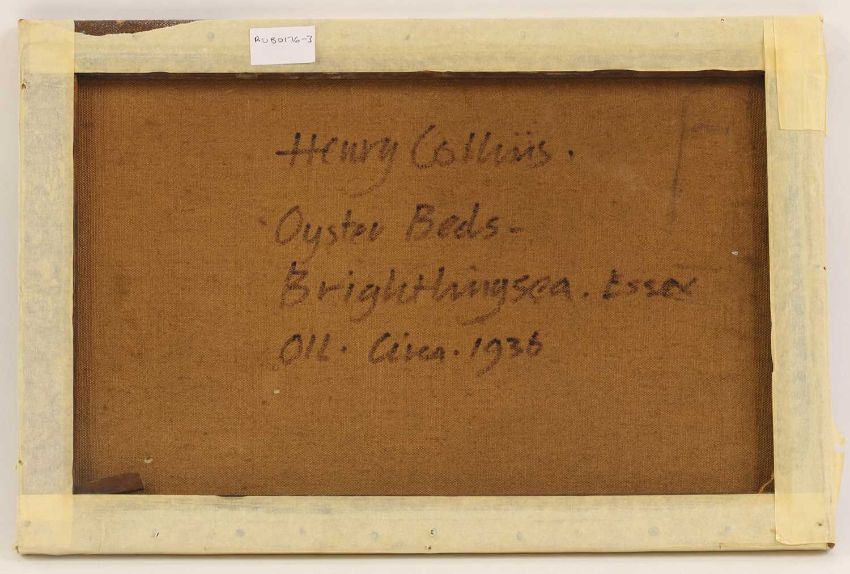 RUB0176-3
Henry Collins.
Oyster Beds-
Brighthingsea. Essex
OIL. Circa. 1936